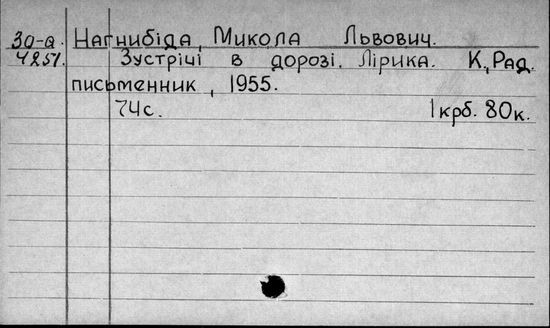 30-а. Нагнибіда, Микола Львович.
4251. Зустрічі в дорозі. Лірика. К., Рад.
письменник, 1955.
74с. 1крб. 80к.